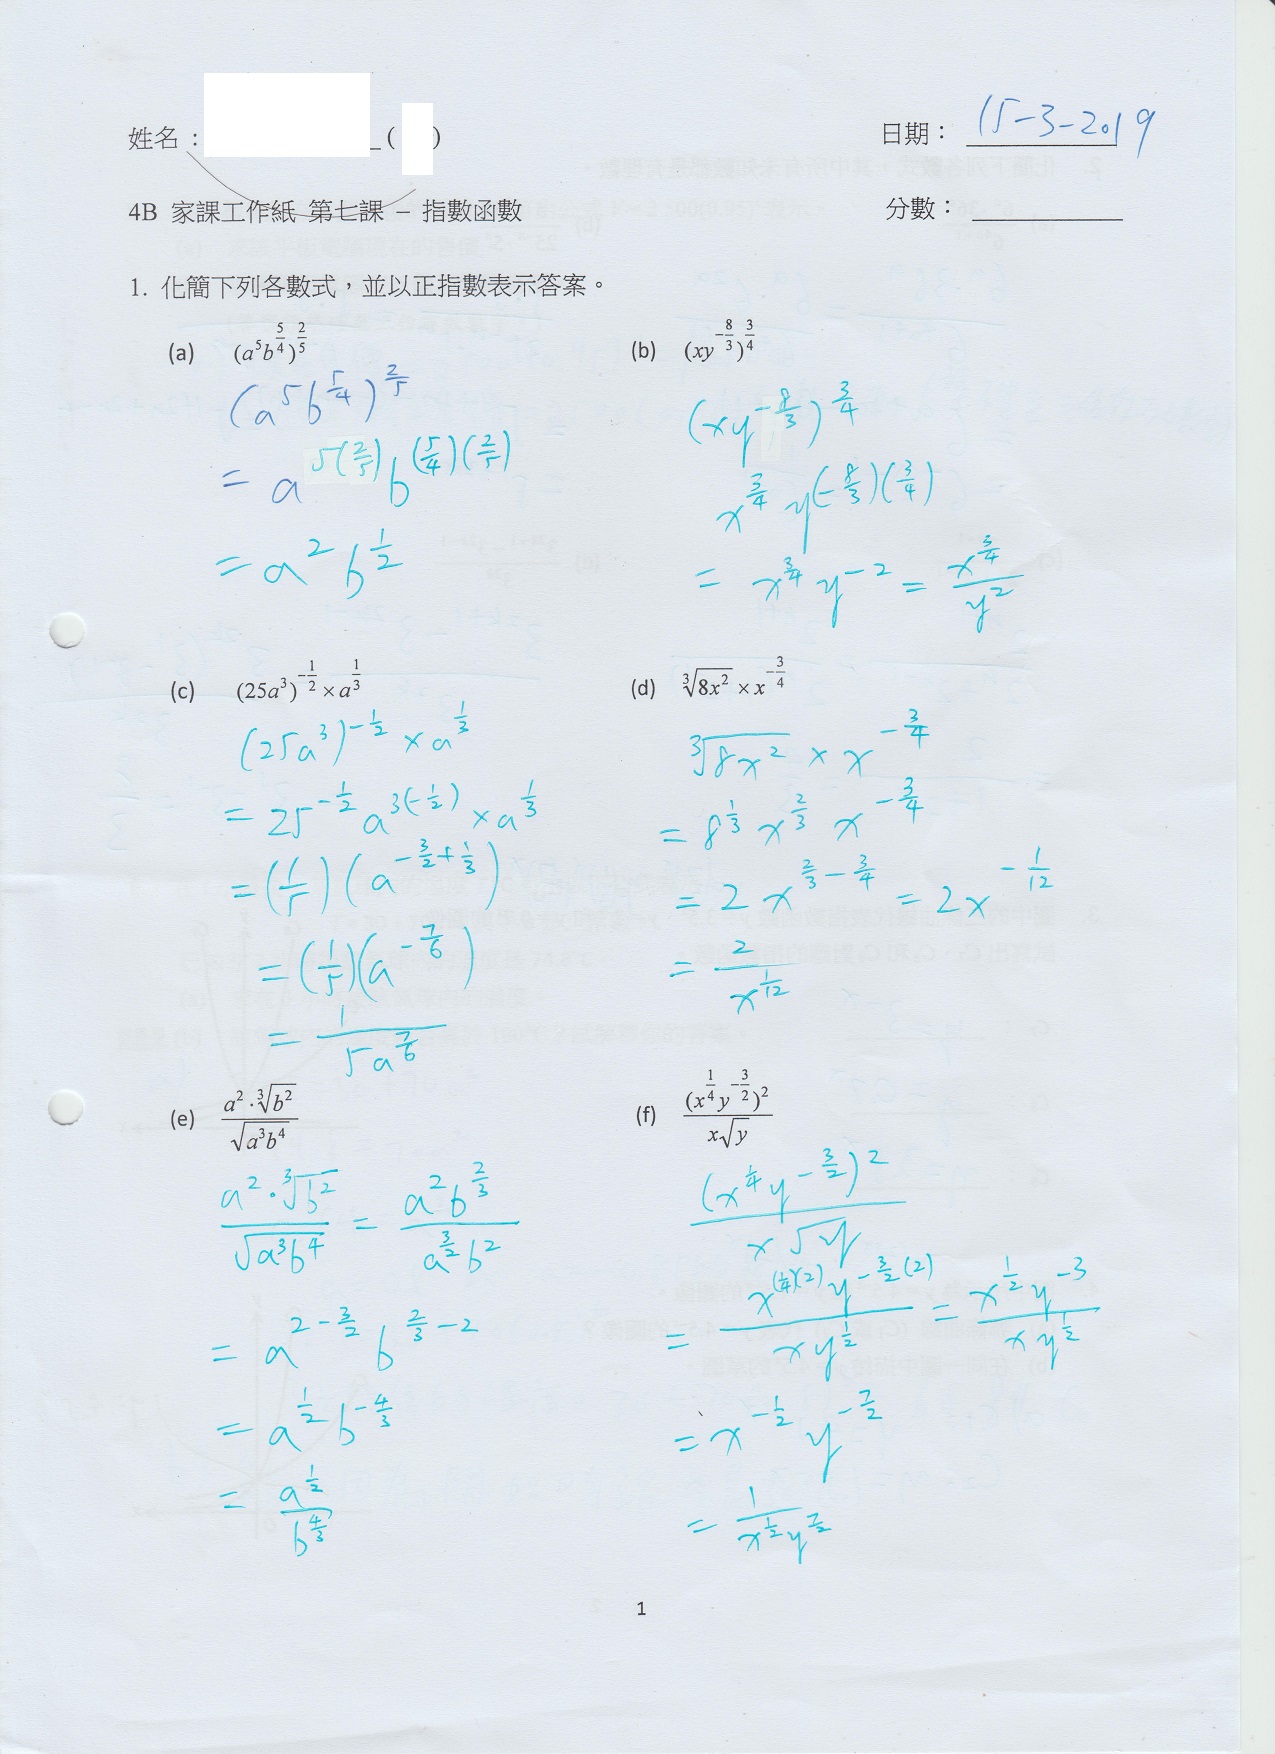 姓名： ( )
日期： 15-3-2019
4B 家課工作紙 第七課 – 指數函數
分數：
1. 化簡下列各數式，並以正指數表示答案。
(a) (a^5 b^(5/4))^(2/5)
(a^5 b^(5/4))^(2/5)
= a^(5(2/5)) b^((5/4)(2/5))
= a^2 b^(1/2)
(b) (xy^(-8/3))^(3/4)
(xy^(-8/3))^(3/4)
x^(3/4) y^((-8/3)(3/4))
= x^(3/4) y^(-2) = x^(3/4)/y^2
(c) (25a^3)^(-1/2) × a^(1/3)
(25a^3)^(-1/2) × a^(1/3)
= 25^(-1/2) a^(3(-1/2)) × a^(1/3)
= (1/5) (a^(-3/2+1/3))
= (1/5)(a^(-7/6))
= 1/(5a^(7/6))
(d) ∛(8x^2) × x^(-3/4)
∛(8x^2) × x^(-3/4)
= 8^(1/3) x^(2/3) x^(-3/4)
= 2 x^(2/3-3/4) = 2x^(-1/12)
= 2/x^(1/12)
(e) (a^2·∛(b^2))/√(a^3 b^4)
(a^2·∛(b^2))/√(a^3 b^4) = (a^2 b^(2/3))/(a^(3/2) b^2)
= a^(2-3/2) b^(2/3-2)
= a^(1/2) b^(-4/3)
= a^(1/2)/b^(4/3)
(f) (x^(1/4) y^(-3/2))^2/(x√y)
(x^(1/4) y^(-3/2))^2/(x√y)
= (x^((1/4)(2)) y^(-3/2(2)))/(xy^(1/2)) = (x^(1/2) y^(-3))/(xy^(1/2))
= x^(-1/2) y^(-7/2)
= 1/(x^(1/2) y^(7/2))
1